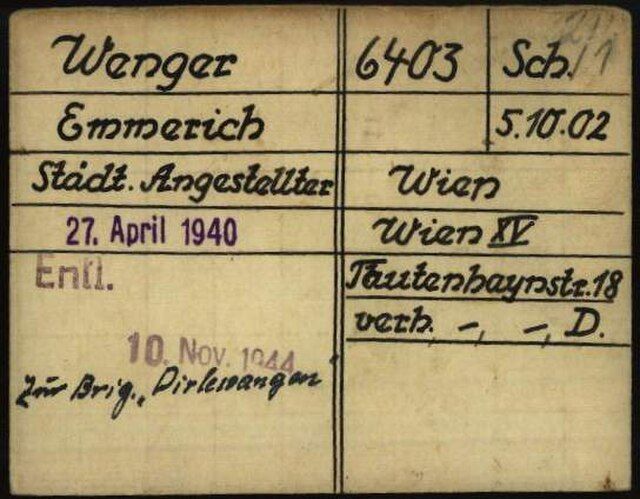 Wenger 6403 Sch. 1
Emmerich 5.10.02
Städt. Angestellter Wien
27. April 1940 Wien XV
Entl. Tautenhaynstr. 18
verh. -, -, D.
10. Nov. 1944
zur Brig. „Dirlewangen"